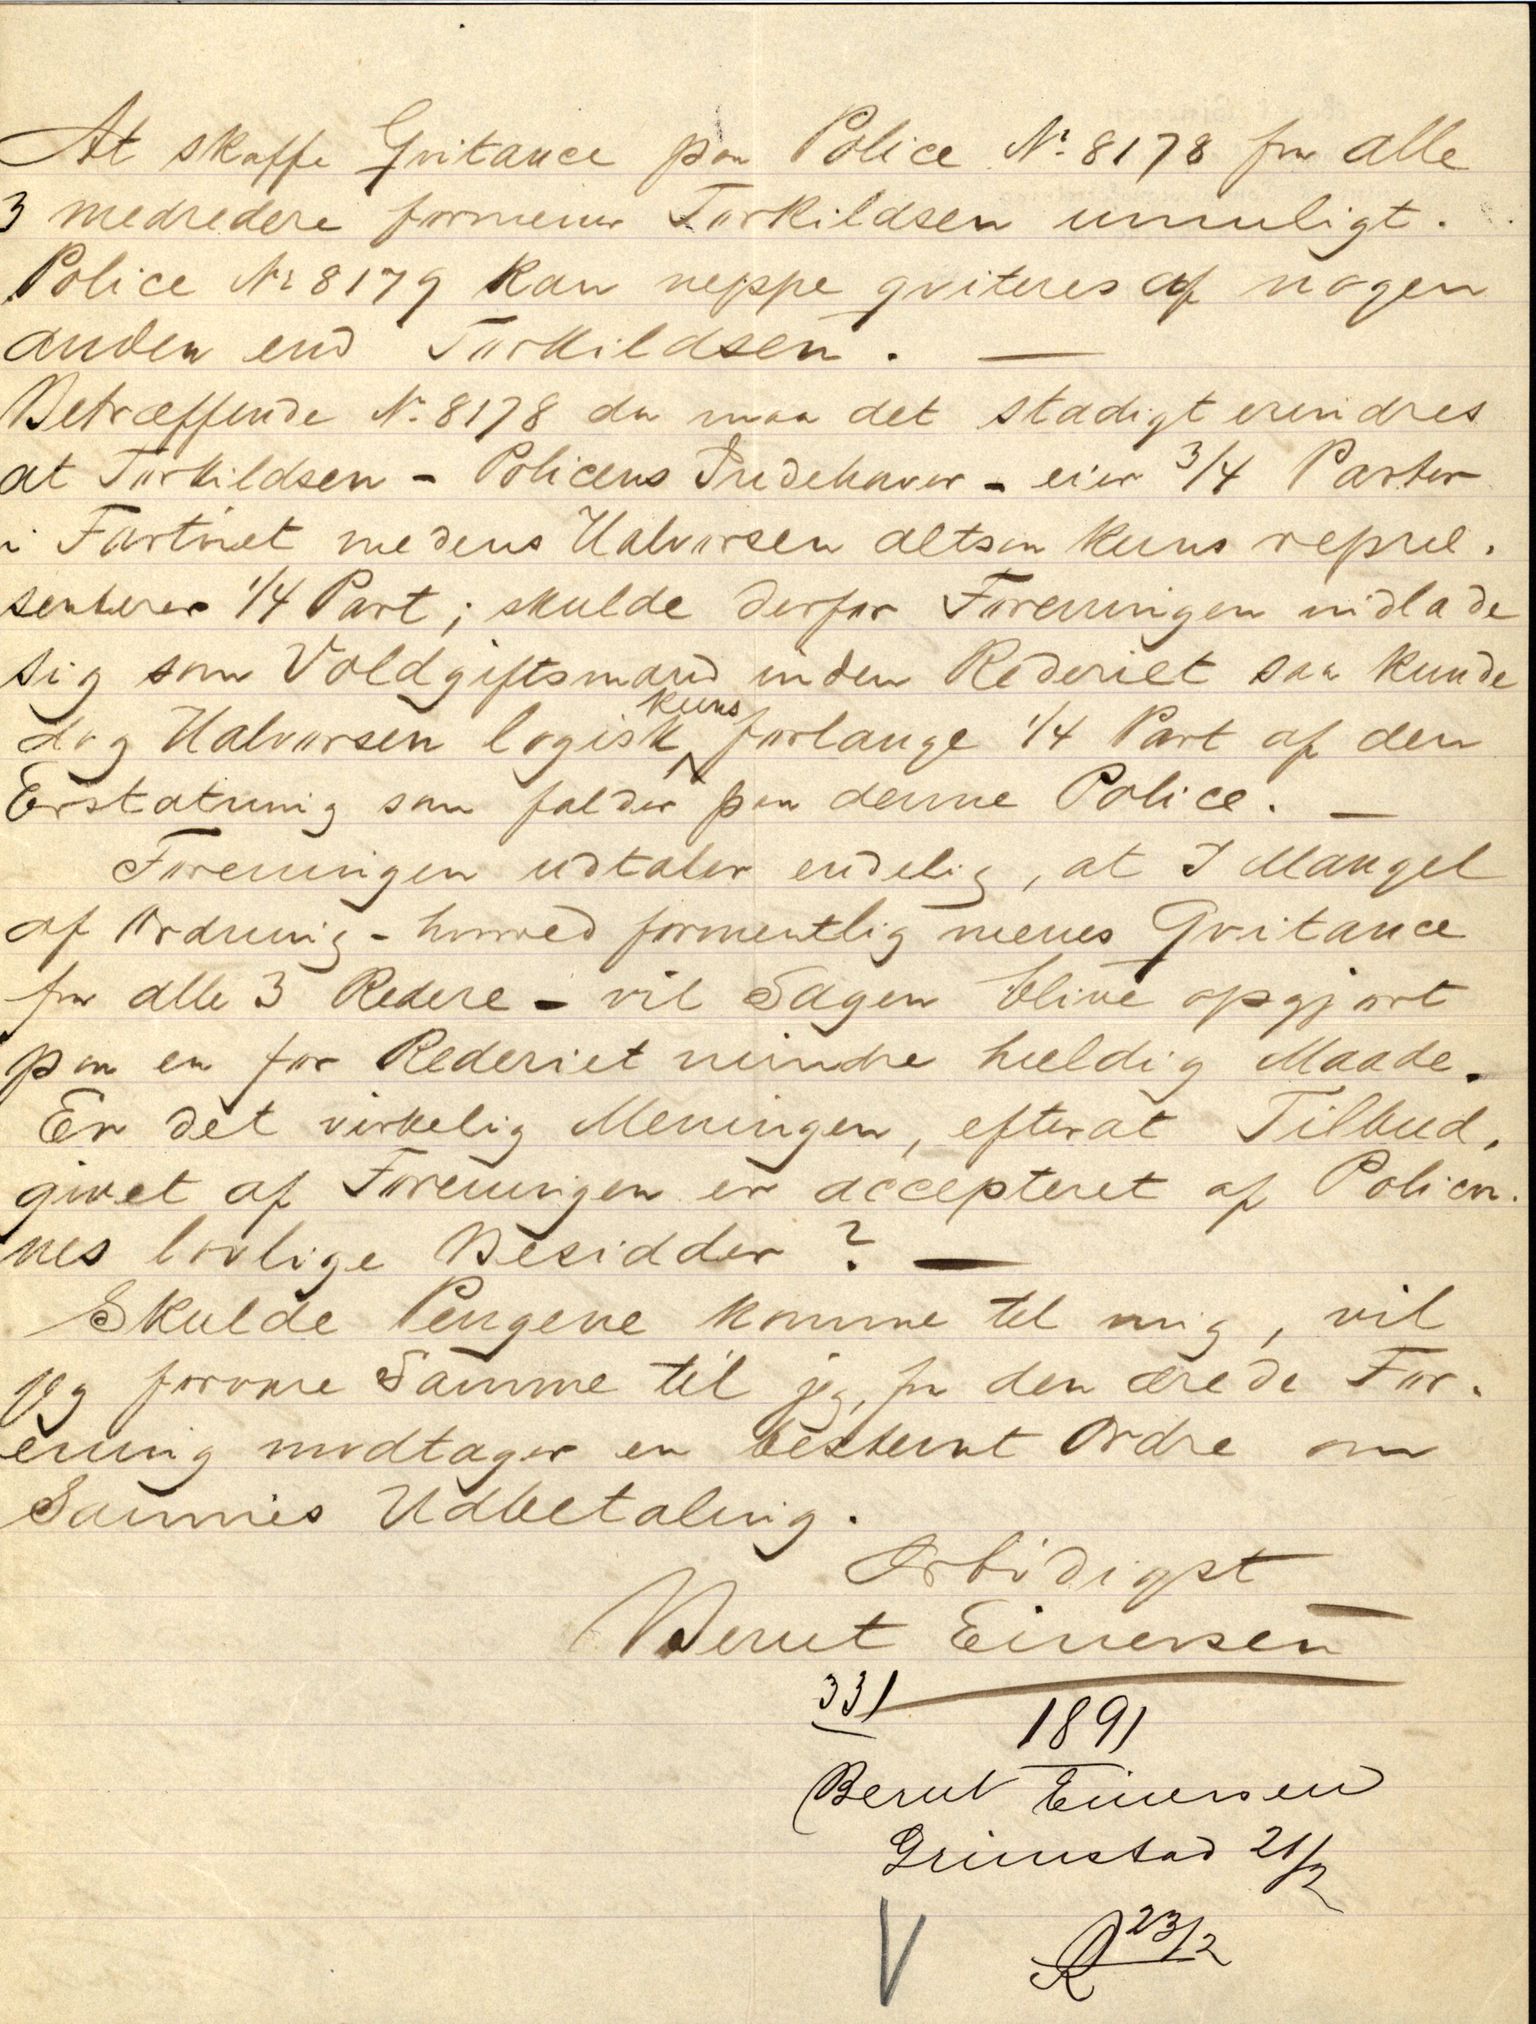 At skaffe Qvitance paa Police No. 8178 fra alle
3 medredere formener Torkildsen umuligt.
Police No 8179 kan neppe qviteres af nogen
anden end Torkildsen. —
Betræffende No. 8178 da maa det stadigt erindres
at Torkildsen - Policens Indehaver - eier 3/4 Parter
i Fartöiet medens Halvorsen altsaa kuns repræ-
senterer 1/4 Part; skulde derfor Foreningen indlade
sig som Voldgiftsmand inden Rederiet saa kunde
dog Halvorsen logisk kuns forlange 1/4 Part af den
Erstatning som falder paa denne Police. —
Foreningen udtaler endelig, at I Mangel
af Ordning - hvorved formentlig menes Qvitance
fra alle 3 Redere - vil Sagen blive opgjort
paa en for Rederiet mindre heldig Maade.
Er det virkelig Meningen, efterat Tilbud,
givet af Foreningen er accepteret af Policer-
nes lovlige Besidder? —
Skulde Pengene komme til mig, vil
jeg forvare Samme til jeg, fra den ærede For-
ening modtager en bestemt Ordre om
Sammes Udbetaling.
Ærbödigst
Bernt Einersen
331
1891
Bernt Einersen
Grimstad 21/2
R 23/2
V